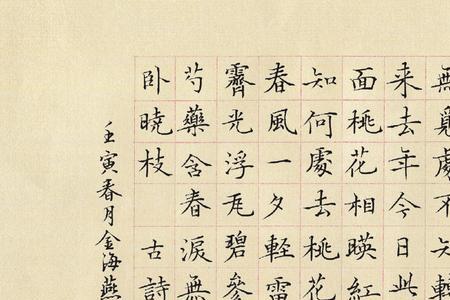 無覓處不知轉
来去年今日此
面桃花相暎紅
知何處去桃花
春風一夕軽雷
霽光浮瓦碧參
芍藥含春淚無
卧曉枝 古詩
壬寅春月金海燕